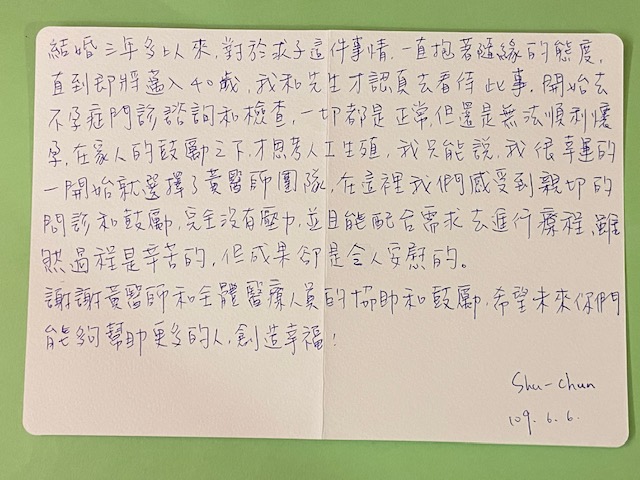 結婚三年多以來,對於求子這件事情,一直抱著隨緣的態度,
直到即將邁入40歲,我和先生才認真去看待此事,開始去
不孕症門診諮詢和檢查,一切都是正常,但還是無法順利懷
孕,在家人的鼓勵之下,才思考人工生殖,我只能說,我很幸運的
一開始就選擇了黃醫師團隊,在這裡我們感受到親切的
問診和鼓勵,完全沒有壓力,並且能配合需求去進行療程,雖
然過程是辛苦的,但成果卻是令人安慰的。
謝謝黃醫師和全體醫療人員的協助和鼓勵,希望未來你們
能夠幫助更多的人,創造幸福!
Shu-chun
109.6.6.